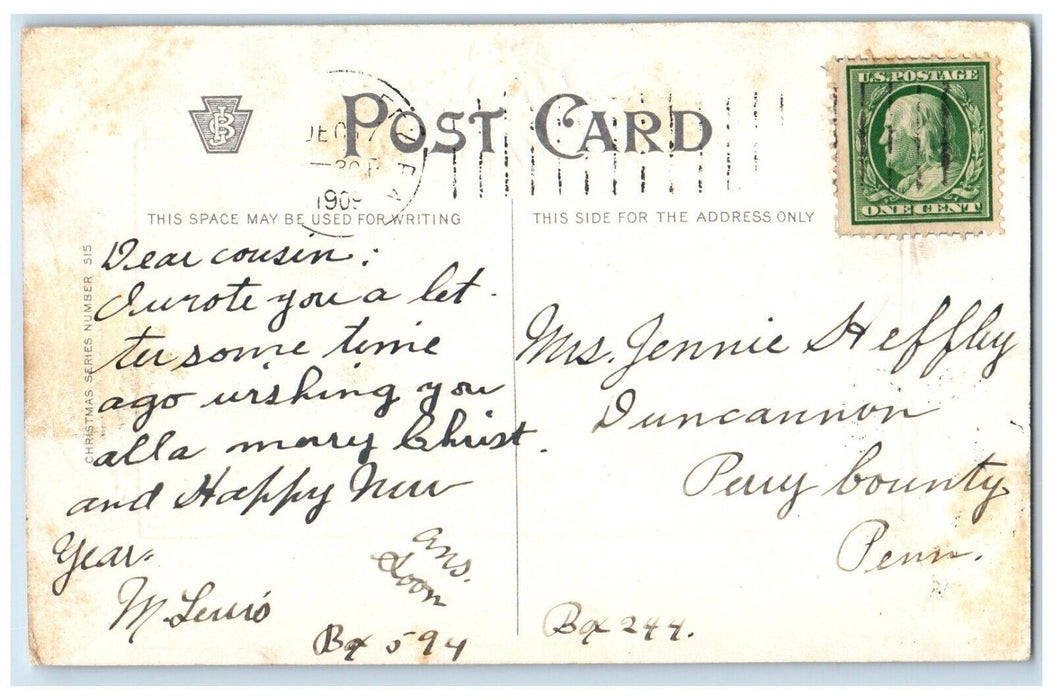 POST CARD
U.S. POSTAGE
ONE CENT
1909
THIS SPACE MAY BE USED FOR WRITING
THIS SIDE FOR THE ADDRESS ONLY
CHRISTMAS SERIES NUMBER 515
Dear cousin:
I wrote you a let-
ter some time
ago wishing you
all a merry Christ.
and Happy New
Year.
M. Lewis
Ans.
Soon
Bx 594
Mrs. Jennie Heffley
Duncannon
Perry County
Penn.
Bx 244.